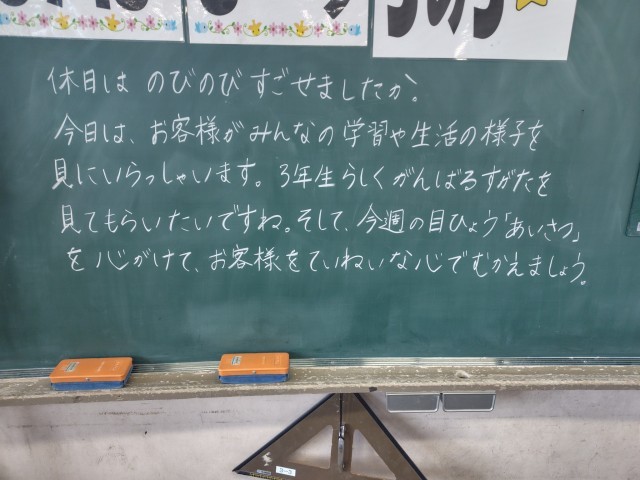 休日は のびのび すごせましたか。
今日は、お客様がみんなの学習や生活の様子を
見にいらっしゃいます。3年生らしくがんばるすがたを
見てもらいたいですね。そして、今週の目ひょう「あいさつ」
を心がけて、お客様をていねいな心でむかえましょう。